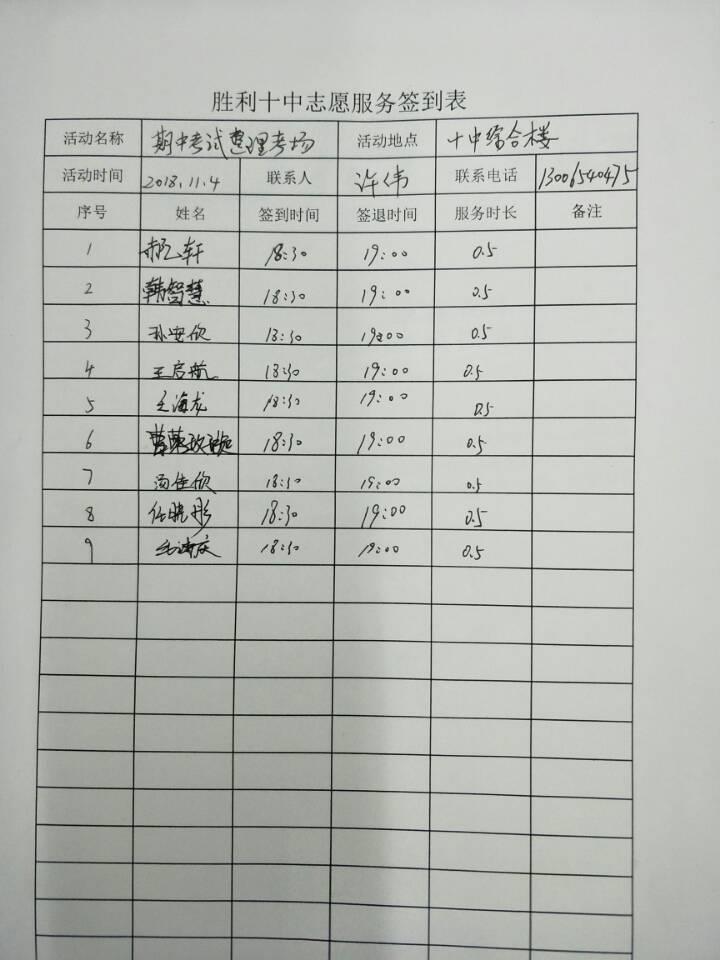 胜利十中志愿服务签到表
活动名称 期中考试整理考场 活动地点 十中综合楼
活动时间 2018.11.4 联系人 许伟 联系电话 13006540475
序号 姓名 签到时间 签退时间 服务时长 备注
1 18:30 19:00 0.5
2 韩智慧 18:30 19:00 0.5
3 孙安欣 18:30 19:00 0.5
4 王启航 18:30 19:00 0.5
5 王海龙 18:30 19:00 0.5
6 18:30 19:00 0.5
7 汤佳欣 18:30 19:00 0.5
8 任晓彤 18:30 19:00 0.5
9 18:30 19:00 0.5